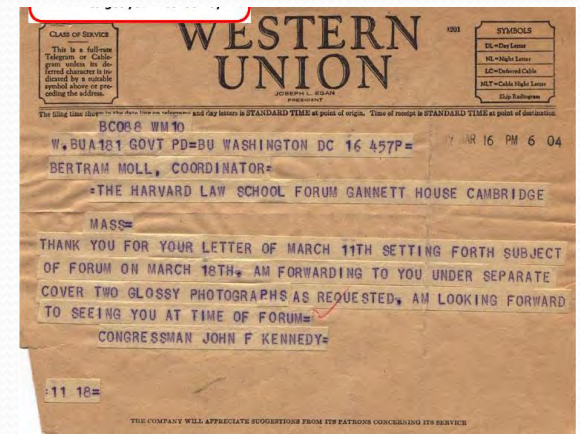 CLASS OF SERVICE
This is a full-rate
Telegram or Cable-
gram unless its de-
ferred character is in-
dicated by a suitable
symbol above or pre-
ceding the address.
WESTERN
UNION
JOSEPH L. EGAN
PRESIDENT
1201
SYMBOLS
DL=Day Letter
NL=Night Letter
LC=Deferred Cable
NLT=Cable Night Letter
Ship Radiogram
The filing time shown in the date line on telegrams and day letters is STANDARD TIME at point of origin. Time of receipt is STANDARD TIME at point of destination
BC088 WM10
W.BUA181 GOVT PD=BU WASHINGTON DC 16 457P=
MAR 16 PM 6 04
BERTRAM MOLL, COORDINATOR=
=THE HARVARD LAW SCHOOL FORUM GANNETT HOUSE CAMBRIDGE
MASS=
THANK YOU FOR YOUR LETTER OF MARCH 11TH SETTING FORTH SUBJECT
OF FORUM ON MARCH 18TH. AM FORWARDING TO YOU UNDER SEPARATE
COVER TWO GLOSSY PHOTOGRAPHS AS REQUESTED. AM LOOKING FORWARD
TO SEEING YOU AT TIME OF FORUM=
CONGRESSMAN JOHN F KENNEDY=
:11 18=
THE COMPANY WILL APPRECIATE SUGGESTIONS FROM ITS PATRONS CONCERNING ITS SERVICE